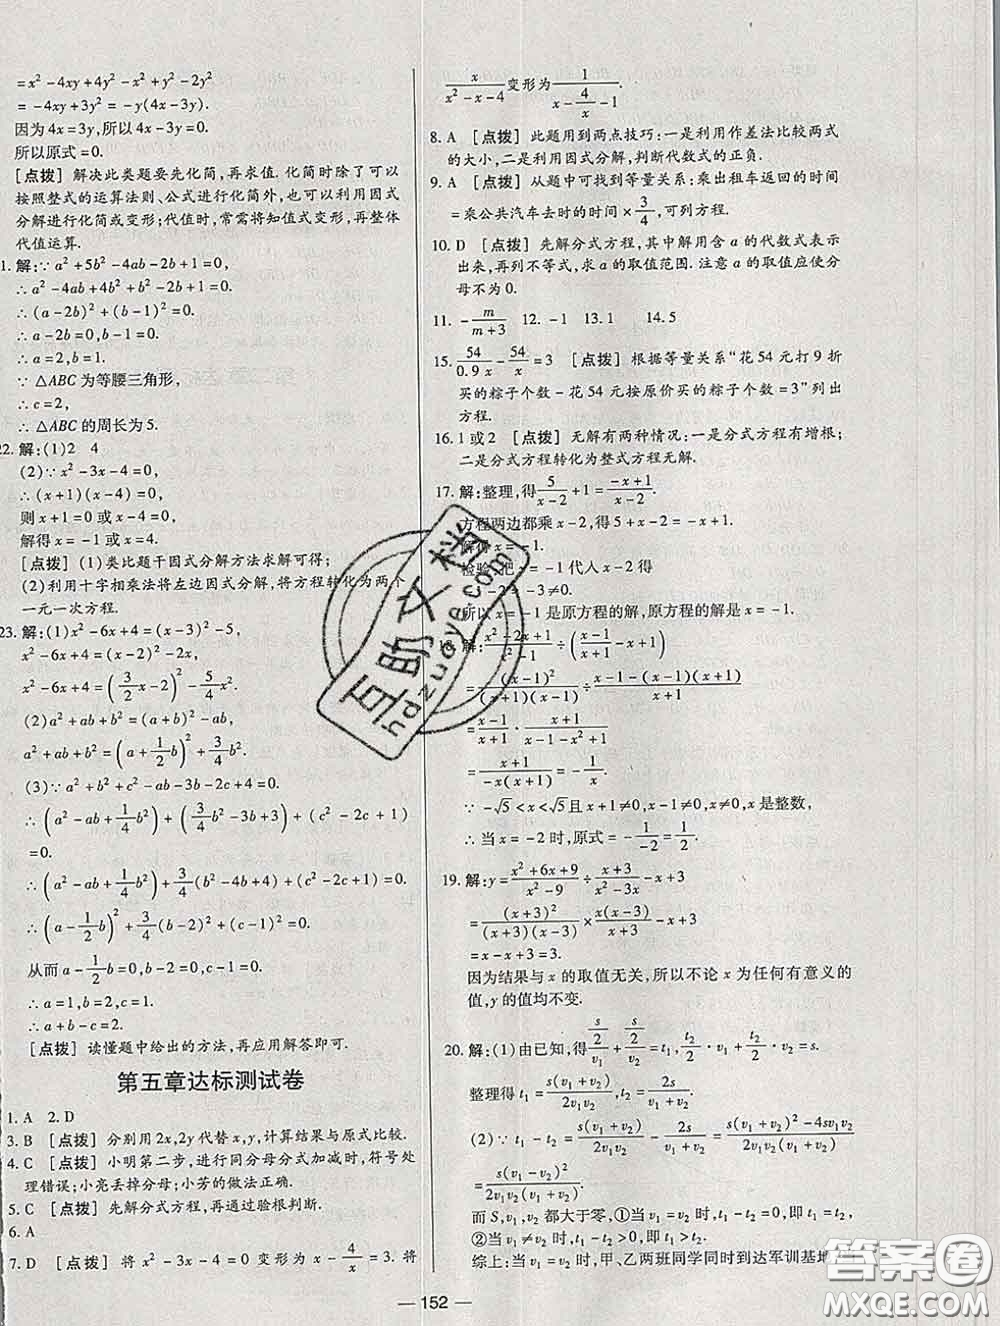 =x²-4xy+4y²-x²+y²-2y²
=-4xy+3y²=-y(4x-3y).
因为4x=3y,所以4x-3y=0.
所以原式=0.
[点拨] 解决此类题要先化简,再求值. 化简时除了可以
按照整式的运算法则、公式进行化简外,也可以利用因式
分解进行化简或变形;代值时,常需将知值式变形,再整体
代值运算.
1.解:∵a²+5b²-4ab-2b+1=0,
∴a²-4ab+4b²+b²-2b+1=0.
∴(a-2b)²+(b-1)²=0.
∴a-2b=0,b-1=0.
∴a=2,b=1.
∵△ABC为等腰三角形,
∴c=2,
∴△ABC的周长为5.
22.解:(1)2 4
(2)∵x²-3x-4=0,
∴(x+1)(x-4)=0,
则x+1=0或x-4=0,
解得x=-1或x=4.
[点拨] (1)类比题干因式分解方法求解可得;
(2)利用十字相乘法将左边因式分解,将方程转化为两个
一元一次方程.
23.解:(1)x²-6x+4=(x-3)²-5,
x²-6x+4=(x-2)²-2x,
x²-6x+4=(3/2 x-2)²-5/4 x².
(2)a²+ab+b²=(a+b)²-ab,
a²+ab+b²=(a+1/2 b)²+3/4 b².
(3)∵a²+b²+c²-ab-3b-2c+4=0.
∴(a²-ab+1/4 b²)+(3/4 b²-3b+3)+(c²-2c+1)
=0.
∴(a²-ab+1/4 b²)+3/4(b²-4b+4)+(c²-2c+1)=0.
∴(a-1/2 b)²+3/4(b-2)²+(c-1)²=0.
从而a-1/2 b=0,b-2=0,c-1=0.
∴a=1,b=2,c=1.
∴a+b-c=2.
[点拨] 读懂题中给出的方法,再应用解答即可.
第五章达标测试卷
1.A 2.D
3.B [点拨] 分别用2x,2y代替x,y,计算结果与原式比较.
4.C [点拨] 小明第二步,进行同分母分式加减时,符号处
理错误;小亮丢掉分母;小芳的做法正确.
5.C [点拨] 先解分式方程,再通过验根判断.
6.A
7.D [点拨] 将x²-3x-4=0变形为x-4/x=3. 将
x/(x²-x-4)变形为1/(x-4/x-1)
8.A [点拨] 此题用到两点技巧:一是利用作差法比较两式
的大小,二是利用因式分解,判断代数式的正负.
9.A [点拨] 从题中可找到等量关系:乘出租车返回的时间
=乘公共汽车去时的时间×3/4,可列方程.
10.D [点拨] 先解分式方程,其中解用含a的代数式表示
出来,再列不等式,求a的取值范围. 注意a的取值应使分
母不为0.
11.-m/(m+3) 12.-1 13.1 14.5
15.54/0.9x-54/x=3 [点拨] 根据等量关系“花54元打9折
买的粽子个数-花54元按原价买的粽子个数=3”列出
方程.
16.1或2 [点拨] 无解有两种情况:一是分式方程有增根;
二是分式方程转化为整式方程无解.
17.解:整理,得5/(x-2)+1=(-x+1)/(x-2).
方程两边都乘x-2,得5+x-2=-x+1,
解得x=-1.
检验:把x=-1代入x-2得
-2=-3≠0.
所以x=-1是原方程的解,原方程的解是x=-1.
18.解:(x²-2x+1)/(x²-1)÷((x-1)/(x+1)-x+1)
=(x-1)²/((x+1)(x-1))÷(x-1-(x-1)(x+1))/(x+1)
=(x-1)/(x+1)·(x+1)/(x-1-x²+1)
=(x+1)/(-x(x+1))=-1/x.
∵-√5<x<√5且x+1≠0,x-1≠0,x≠0,x是整数,
∴当x=-2时,原式=-1/(-2)=1/2.
19.解:y=(x²+6x+9)/(x²-9)÷(x+3)/(x²-3x)-x+3
=(x+3)²/((x+3)(x-3))×x(x-3)/(x+3)-x+3
=x-x+3=3.
因为结果与x的取值无关,所以不论x为任何有意义的
值,y的值均不变.
20.解:(1)由已知,得(s/2)/v₁+(s/2)/v₂=t₁,t₂/2·v₁+t₂/2·v₂=s.
整理得t₁=s(v₁+v₂)/2v₁v₂,t₂=2s/(v₁+v₂).
(2)∵t₁-t₂=s(v₁+v₂)/2v₁v₂-2s/(v₁+v₂)=(s(v₁+v₂)²-4sv₁v₂)/2v₁v₂(v₁+v₂)
=s(v₁-v₂)²/2v₁v₂(v₁+v₂),
而S,v₁,v₂都大于零,①当v₁=v₂时,t₁-t₂=0,即t₁=t₂;
②当v₁≠v₂时,t₁-t₂>0,即t₁>t₂.
综上:当v₁=v₂时,甲、乙两班同学同时到达军训基地
152
互助文档
hdzuoye.com
答案圈
MXQE.COM